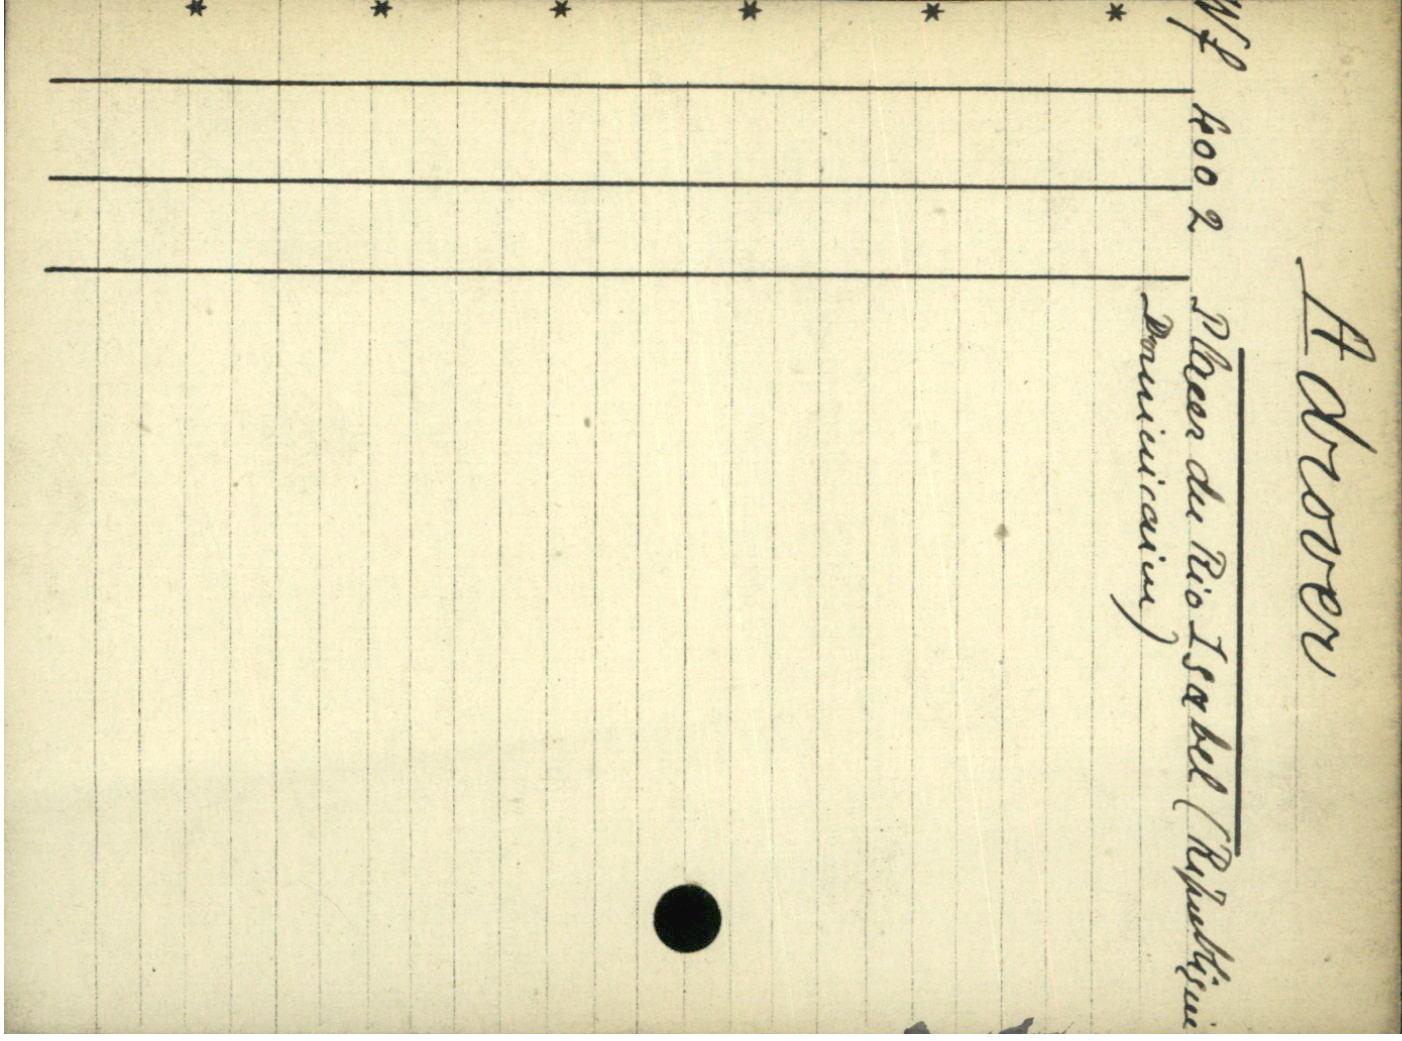 Adrover
Wf 400 2 Placer du Rio Isabel (République
Dominicaine)